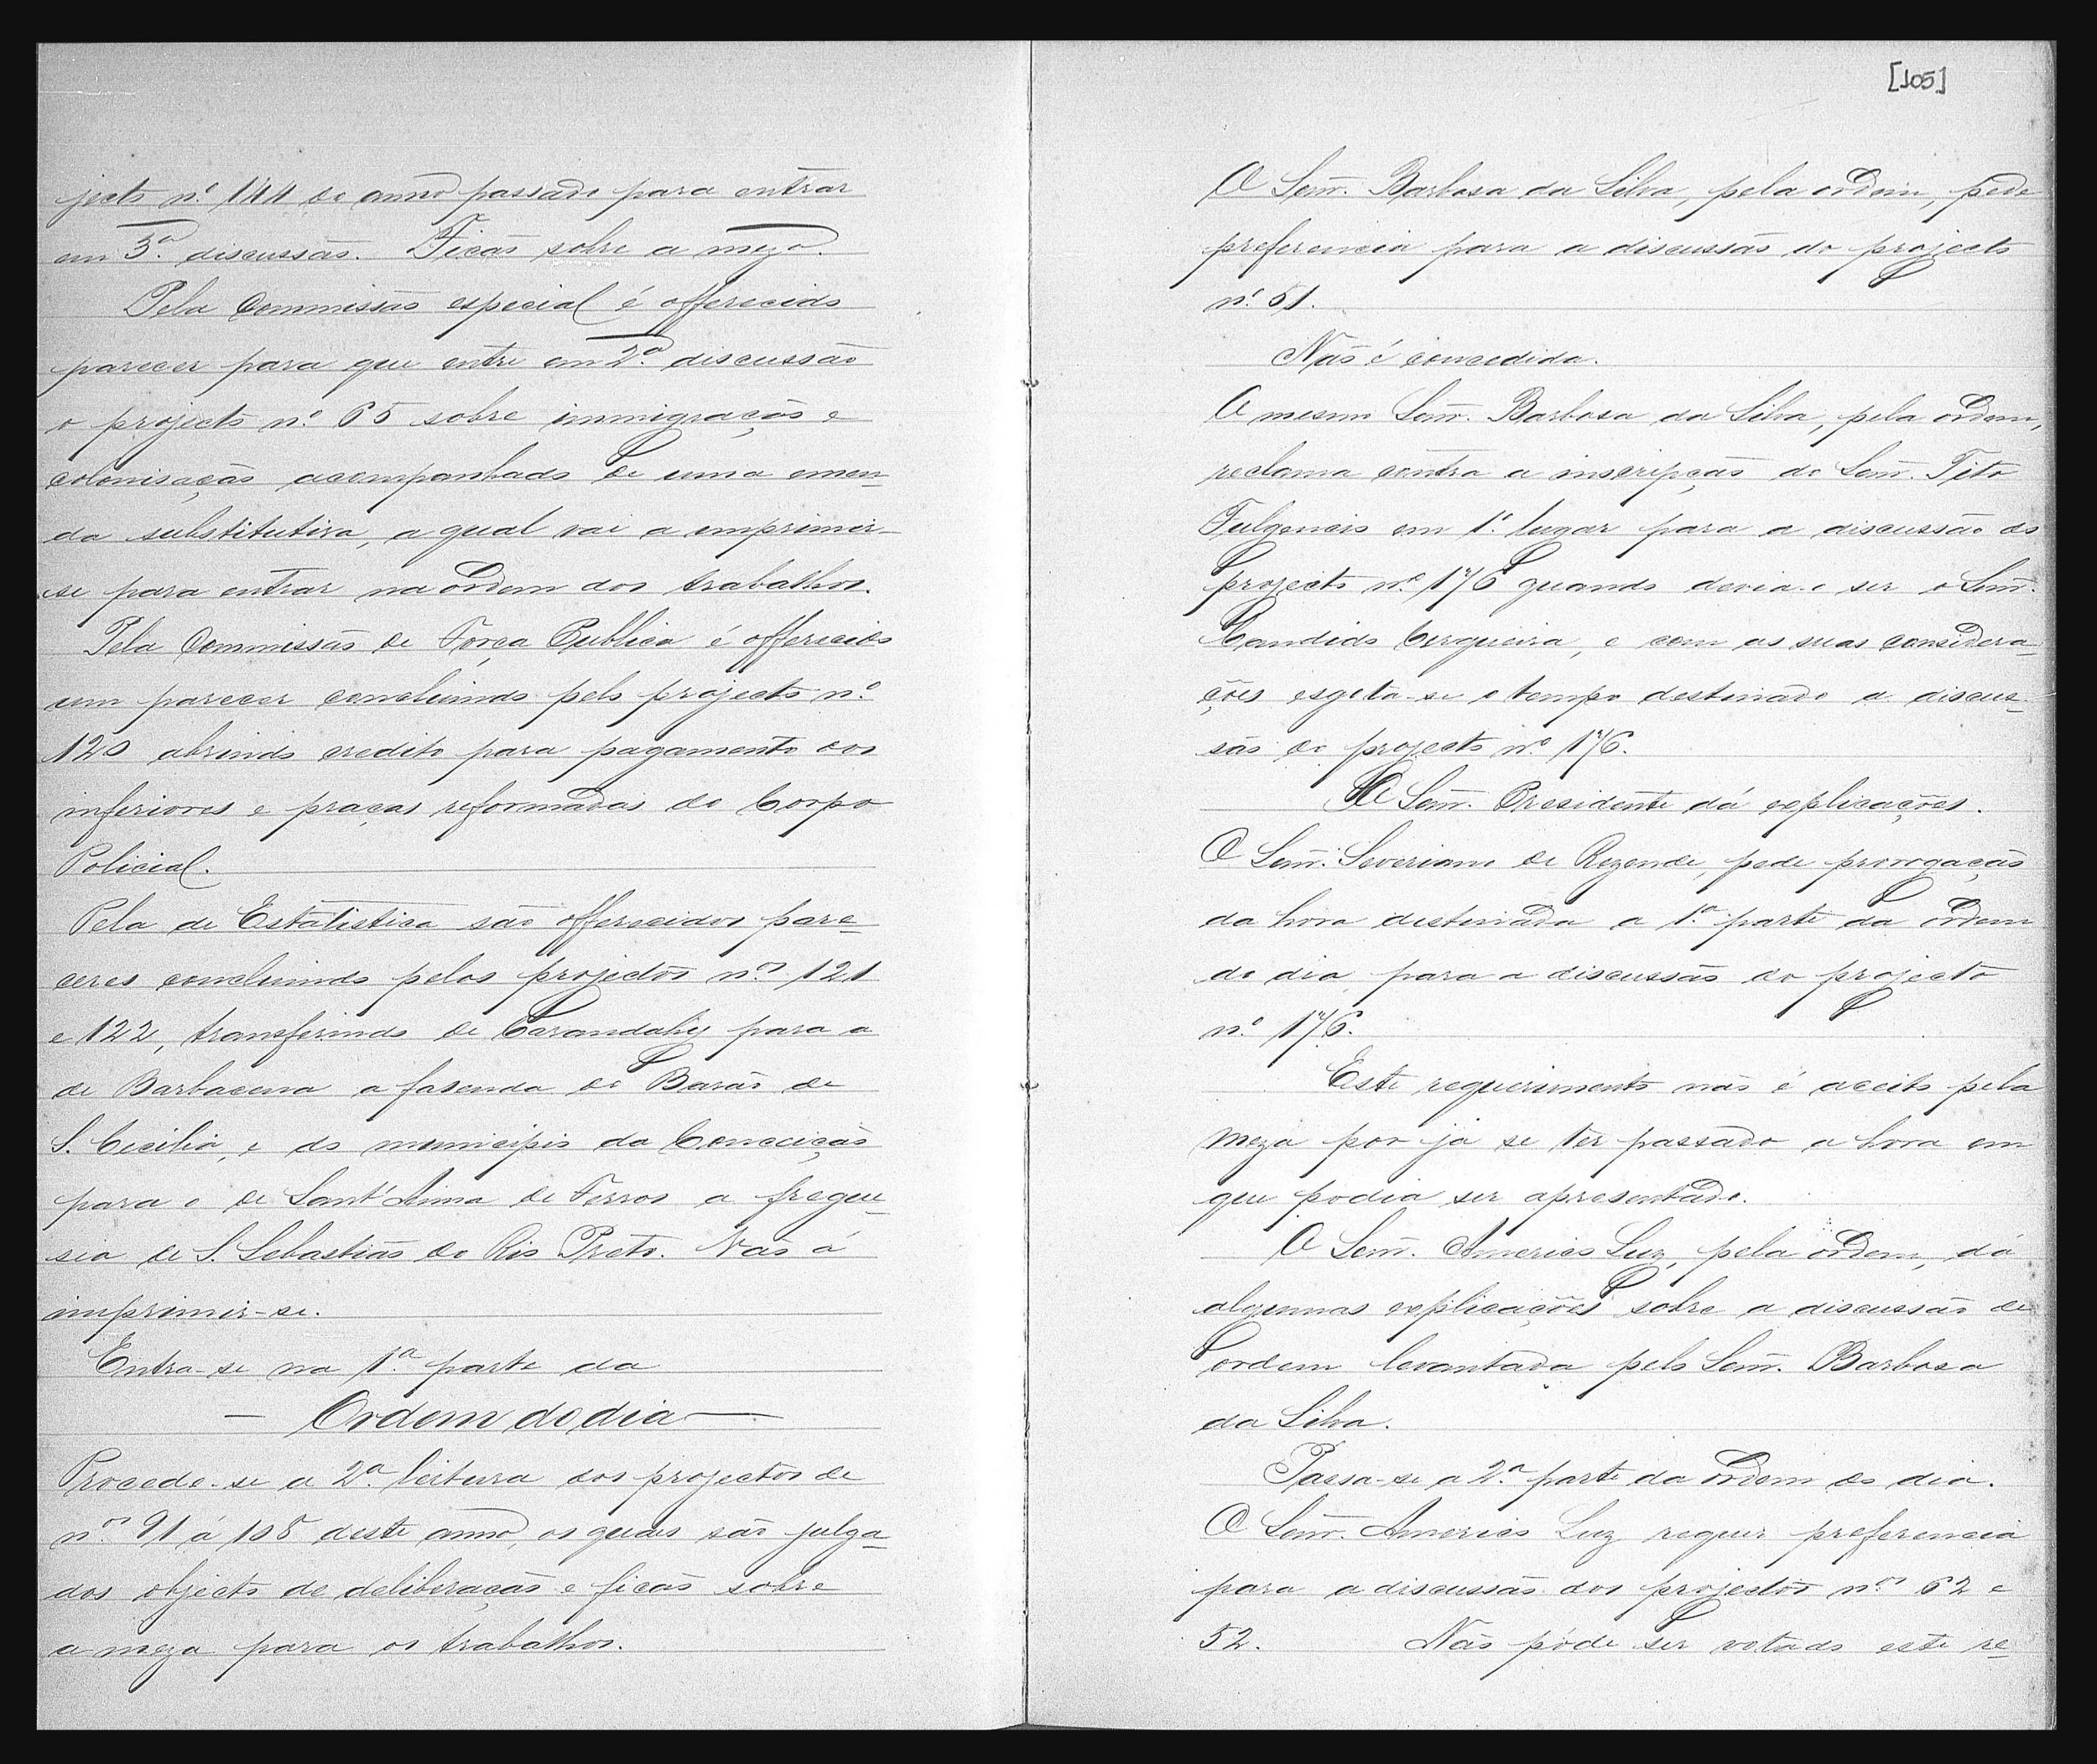 jecto n.º 144 do anno passado para entrar
em 3.ª discussão. Ficão sobre a meza.
Pela Commissão especial é offerecido
parecer para que entre em 2.ª discussão
o projecto n.º 65 sobre immigração e
colonisação acompanhado de uma emen-
da substitutiva, a qual vai a imprimir-
se para entrar na ordem dos trabalhos.
Pela Commissão de Força Publica é offerecido
um parecer concluindo pelo projecto n.º
120 abrindo credito para pagamento aos
inferiores e praças reformadas do Corpo
Policial.
Pela de Estatistica são offerecidos pare-
ceres concluindo pelos projectos n.os 121
e 122, transferindo de Carandahy para a
de Barbacena a fasenda do Barão de
S. Cecilia, e do municipio da Conceição
para o de Sant'Anna de Ferros a fregue-
sia de S. Sebastião do Rio Preto. Vão á
imprimir-se.
Entra-se na 1.ª parte da
— Ordem do dia —
Procede-se a 2.ª leitura dos projectos de
n.os 91 á 108 deste anno, os quaes são julga-
dos objecto de deliberação e ficão sobre
a meza para os trabalhos.
[105]
O Senr. Barbosa da Silva, pela ordem, pede
preferencia para a discussão do projecto
n.º 51.
Não é concedida.
O mesmo Senr. Barbosa da Silva, pela ordem,
reclama contra a inscripção do Senr. Tito
Fulgencio em 1.º lugar para a discussão do
projecto n.º 176 quando devia-o ser o Senr.
Candido Cerqueira, e com as suas considera-
ções esgota-se o tempo destinado a discus-
são do projecto n.º 176.
O Senr. Presidente dá explicações.
O Senr. Severiano de Rezende, pede prorogação
da hora destinada a 1.ª parte da ordem
do dia para a discussão do projecto
n.º 176.
Este requerimento não é aceito pela
meza por ja se ter passado a hora em
que podia ser apresentado.
O Senr. Americo Luz, pela ordem, dá
algumas explicações sobre a discussão de
ordem levantada pelo Senr. Barbosa
da Silva.
Passa-se a 2.ª parte da ordem do dia.
O Senr. Americo Luz requer preferencia
para a discussão dos projectos n.os 62 e
52. Não póde ser votado este re-